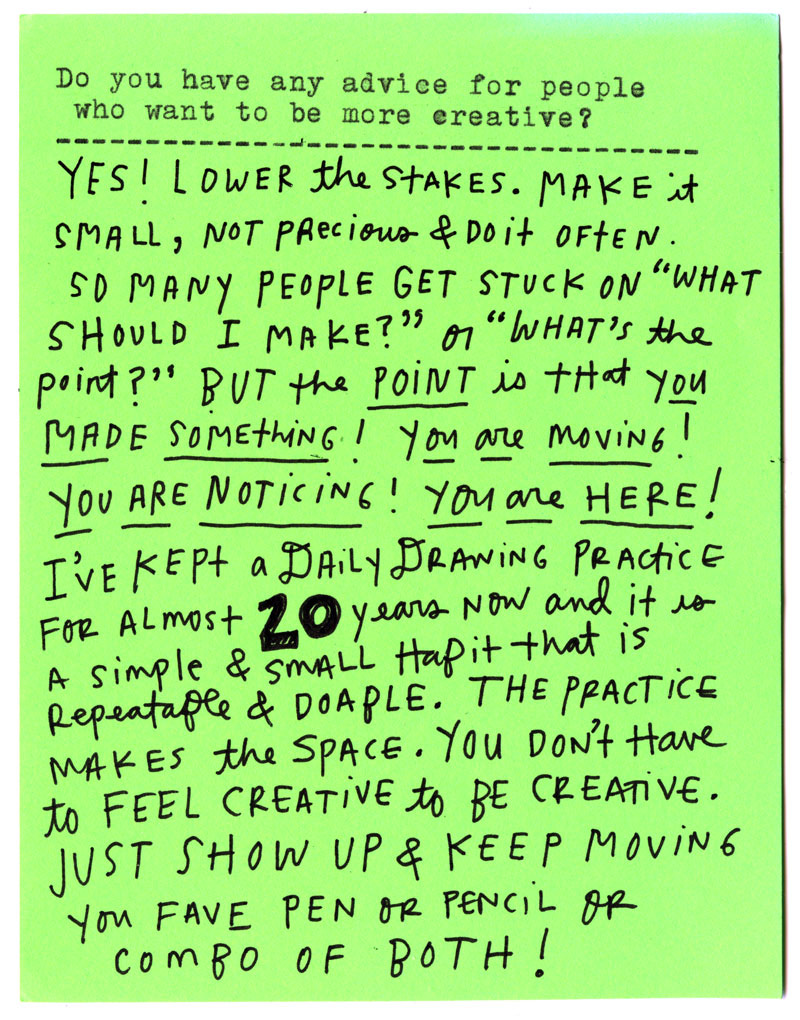 Do you have any advice for people
who want to be more creative?
YES! LOWER the STAKES. MAKE it
SMALL, NOT PRecious & DO it OFteN.
SO MANY PEOPLE GET STUCK ON "WHAT
SHOULD I MAKE?" or "WHAT'S the
point?" BUT the POINT is tHat YOU
MADE SOMEthiNG! You are MOVING!
YOU ARE NOTICING! You are HERE!
I'VE KEPt a DAiLY DRAWING PRActiCE
FOR ALmost 20 years NOW and it is
A simple & SMALL HaBit that is
RepeataBle & DOABLE. THE PRACTiCE
MAKES the SPACE. YOU DON't Have
to FEEL CREATiVE to BE CREATiVE.
JUST SHOW UP & KEEP MOViNG
you FAVE PEN OR PENCiL OR
COMBO OF BOTH!